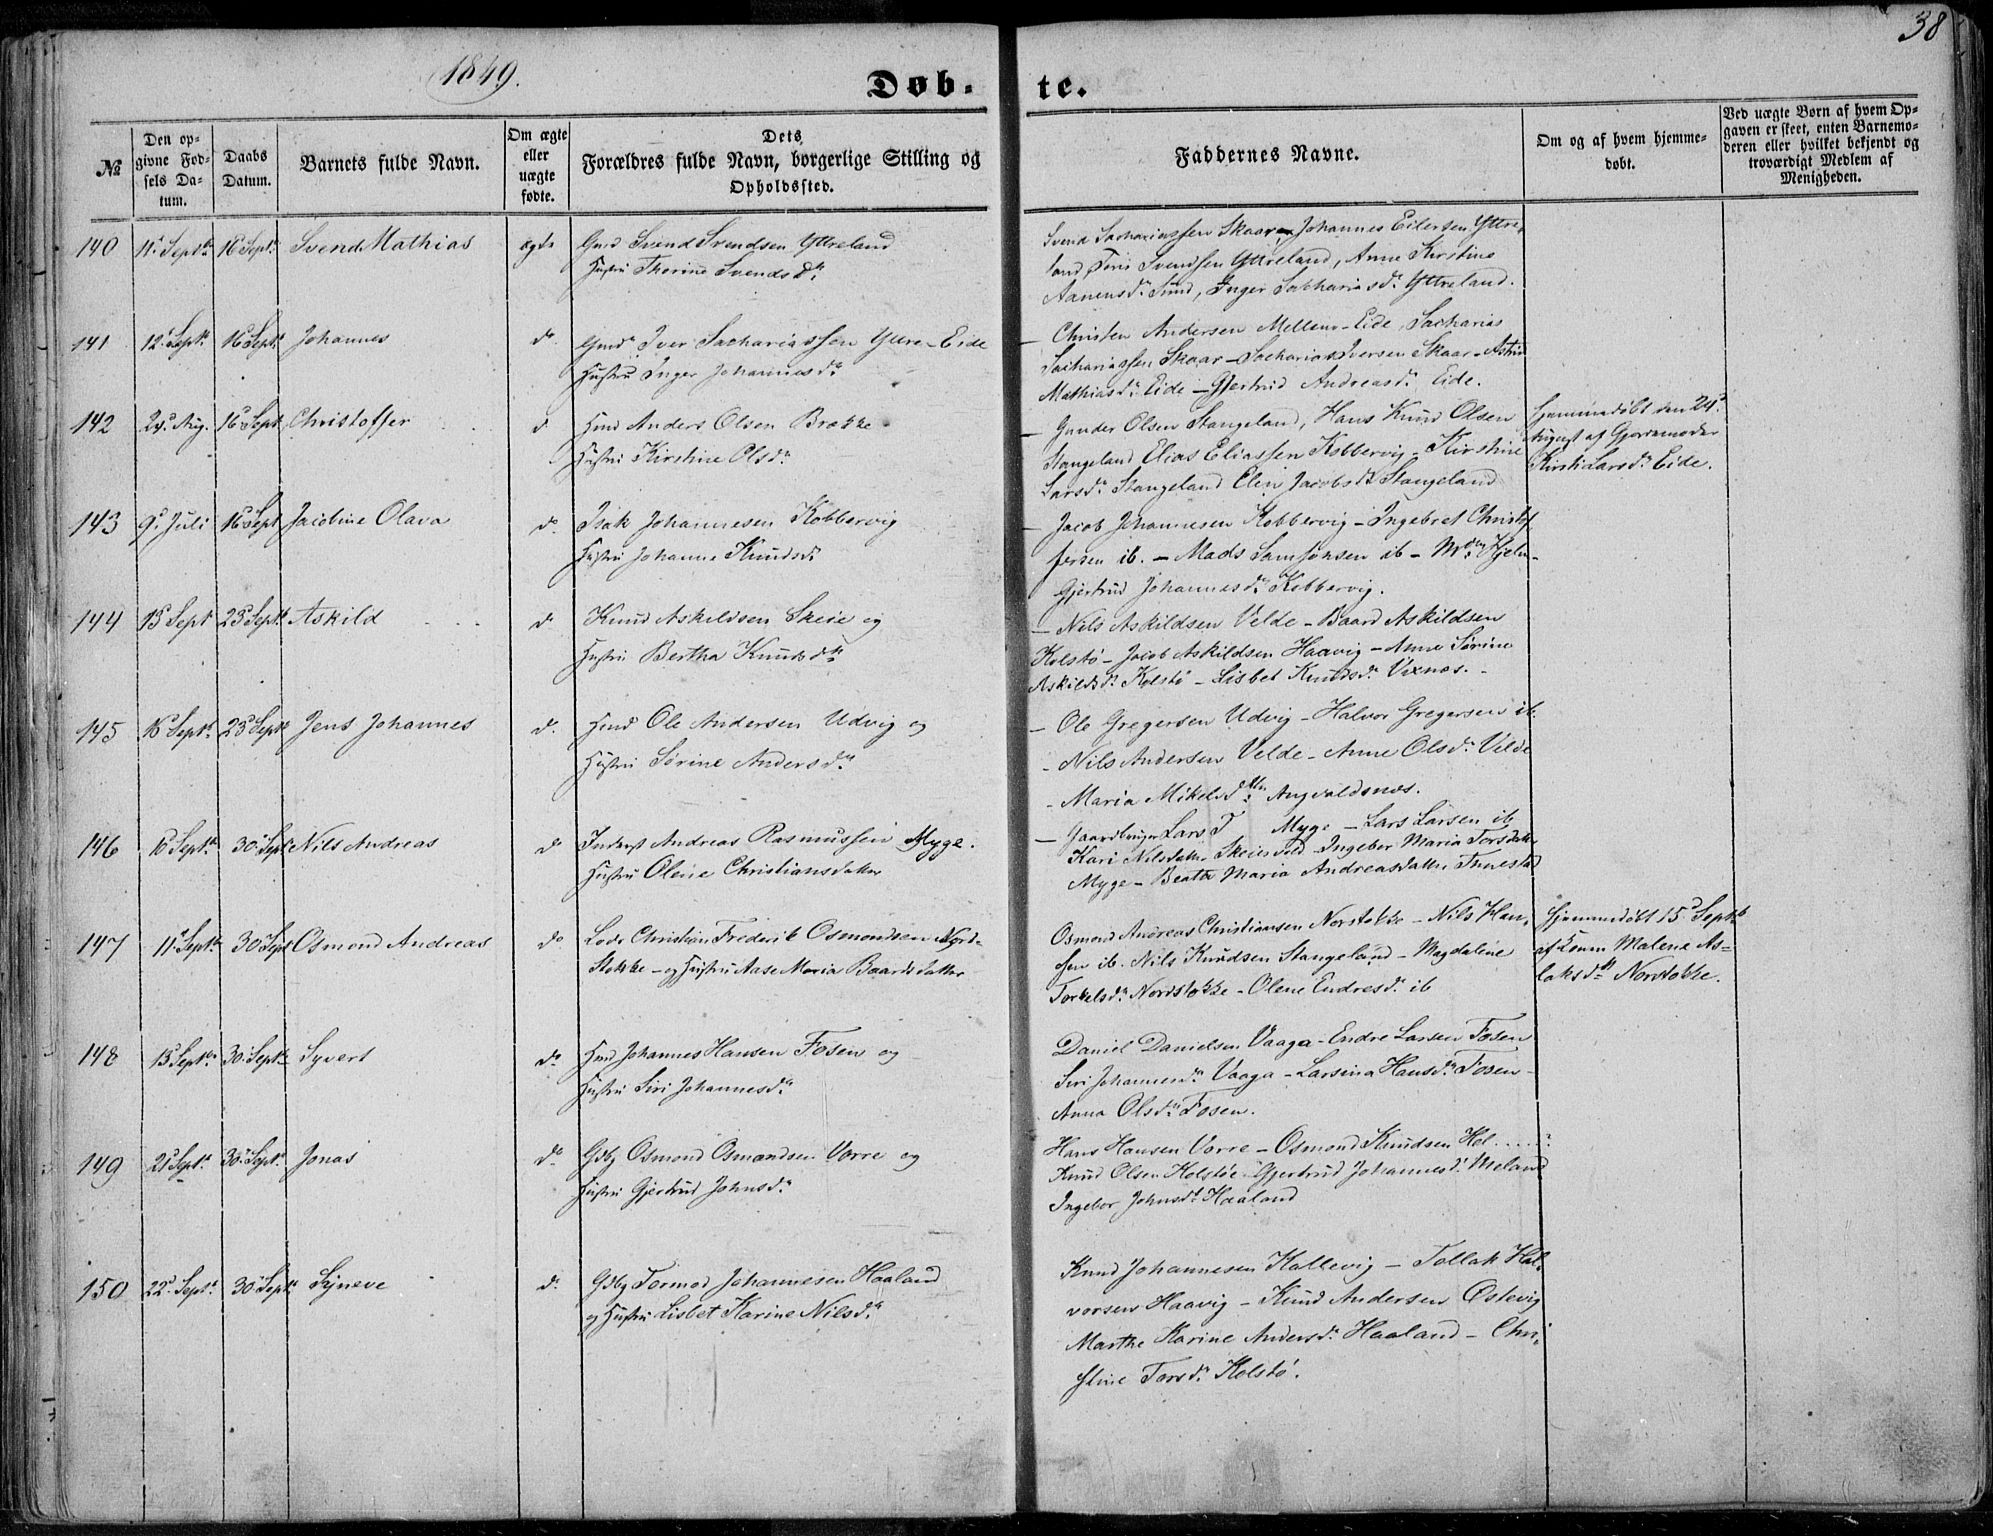 38
1849.
Døb-
te.
№
Den op-
givne Fød-
sels Da-
tum.
Daabs
Datum.
Barnets fulde Navn.
Om ægte
eller
uægte
fødte.
Dets
Forældres fulde Navn, borgerlige Stilling og
Opholdssted.
Faddernes Navne.
Om og af hvem hjemme-
døbt.
Ved uægte Børn af hvem Op-
gaven er skeet, enten Barnemo-
deren eller hvilket bekjendt og
troværdigt Medlem af
Menigheden.
140 11 Septbr 16 Septbr Svend Mathias ægte Gmd Svend Svendsen Yttreland
Hustru Thorine Svendsdr
Svend Sachariassen Skaar, Johannes Eilertsen Yttre-
land, Tøris Svendsen Yttreland, Anne Kirstine
Aanensdr Sund, Inger Sachariasdr Yttreland.
141 12 Septr 16 Septr Johannes do Gmd Iver Sachariassen Yttre-Eide
Hustru Inger Johannesdr
- Christen Andersen Mellem-Eide, Sacharias
Sachariassen Skaar - Sacharias Iversen Skaar - Astrid
Mathiasdr Eide - Gjertrud Andreasdr Eide.
142 24 Aug. 16 Sept Christoffer d Hmd Anders Olsen Brække
Hustru Kirstine Olsdr
- Gunder Olsen Stangeland, Hans Knud Olsen
Stangeland Elias Eliassen Kobbervig - Kirstine
Larsdr Stangeland Elin Jacobsdr Stangeland
Hjemmedøbt den 24
August af Gjordemoder
Kirsti Larsdr Eide.
143 9 Juli 16 Sept Jacobine Olava do Isak Johannesen Kobbervig
Hustru Johanne Knudsdr
- Jacob Johannesen Kobbervig - Ingebret Christof-
fersen ib. - Mads Samsonsen ib -
Gjertrud Johannesdr Kobbervig.
144 13 Sept 23 Septr Askild d Knud Askildsen Skeie og
Hustru Bertha Knudsdr
- Nils Askildsen Velde - Baard Askildsen
Kolstø - Jacob Askildsen Haavig - Anne Sørine
Askildsdr Kolstø - Lisbet Knudsdr Vixnes. -
145 16 Septr 23 Septr Jens Johannes d. Hmd Ole Andersen Udvig og
Hustru Sørine Andersdr
- Ole Gregersen Udvig - Halvor Gregersen ib.
- Nils Andersen Velde - Anne Olsdr Velde
- Maria Mikelsdtr Augvaldsnes.
146 16 Septr 30 Septr Nils Andreas do Inderst Andreas Rasmussen Myge.
Hustru Olene Christiansdatter
- Gaardbruger Lars T Myge - Lars Larsen ib
Kari Nilsdatter Skeiesvold - Ingebor Maria Torsdatter
Myge - Beathe Maria Andreasdatter
147 11 Septr 30 Sept Osmond Andreas do Lods Christian Frederik Osmondsen Nord-
Stokke - og Hustru Aase Maria Baardsdatter
Osmond Andreas Christiansen Norstokke - Nils Han-
sen ib. Nils Knudsen Stangeland - Magdalene
Torkelsdr Nordstokke - Olene Endresdr ib
Hjemmedøbt 15 Septb
af Konen Malene As-
laksdtr Norstokke.
148 13 Septr 30 Septr Syvert do Hmd Johannes Hansen Fosen og
Hustru Siri Johannesdr
Daniel Danielsen Vaaga - Endre Larsen Fosen
Siri Johannesdr Vaaga - Larsina Hansdr Fosen -
Anna Olsdr Fosen.
149 21 Septr 30 Septr Jonas do Gdbg Osmond Osmondsen Vorre og
Hustru Gjertrud Johnsdr
Hans Hansen Vorre - Osmond Knudsen Hol......
Knud Olsen Kolstøe - Gjertrud Johannesdr Meland
Ingebor Johnsdr Haaland
150 22 Septr 30 Septr Syneve d. Gdbg Tormod Johannesen Haaland
og Hustru Lisbet Karine Nilsdr
Knud Johannesen Kallevig - Tollak Hal-
vorsen Haavig - Knud Andersen Østevig
Marthe Karine Andersdr Haaland - Chri-
stine Torsdr Kolstø.